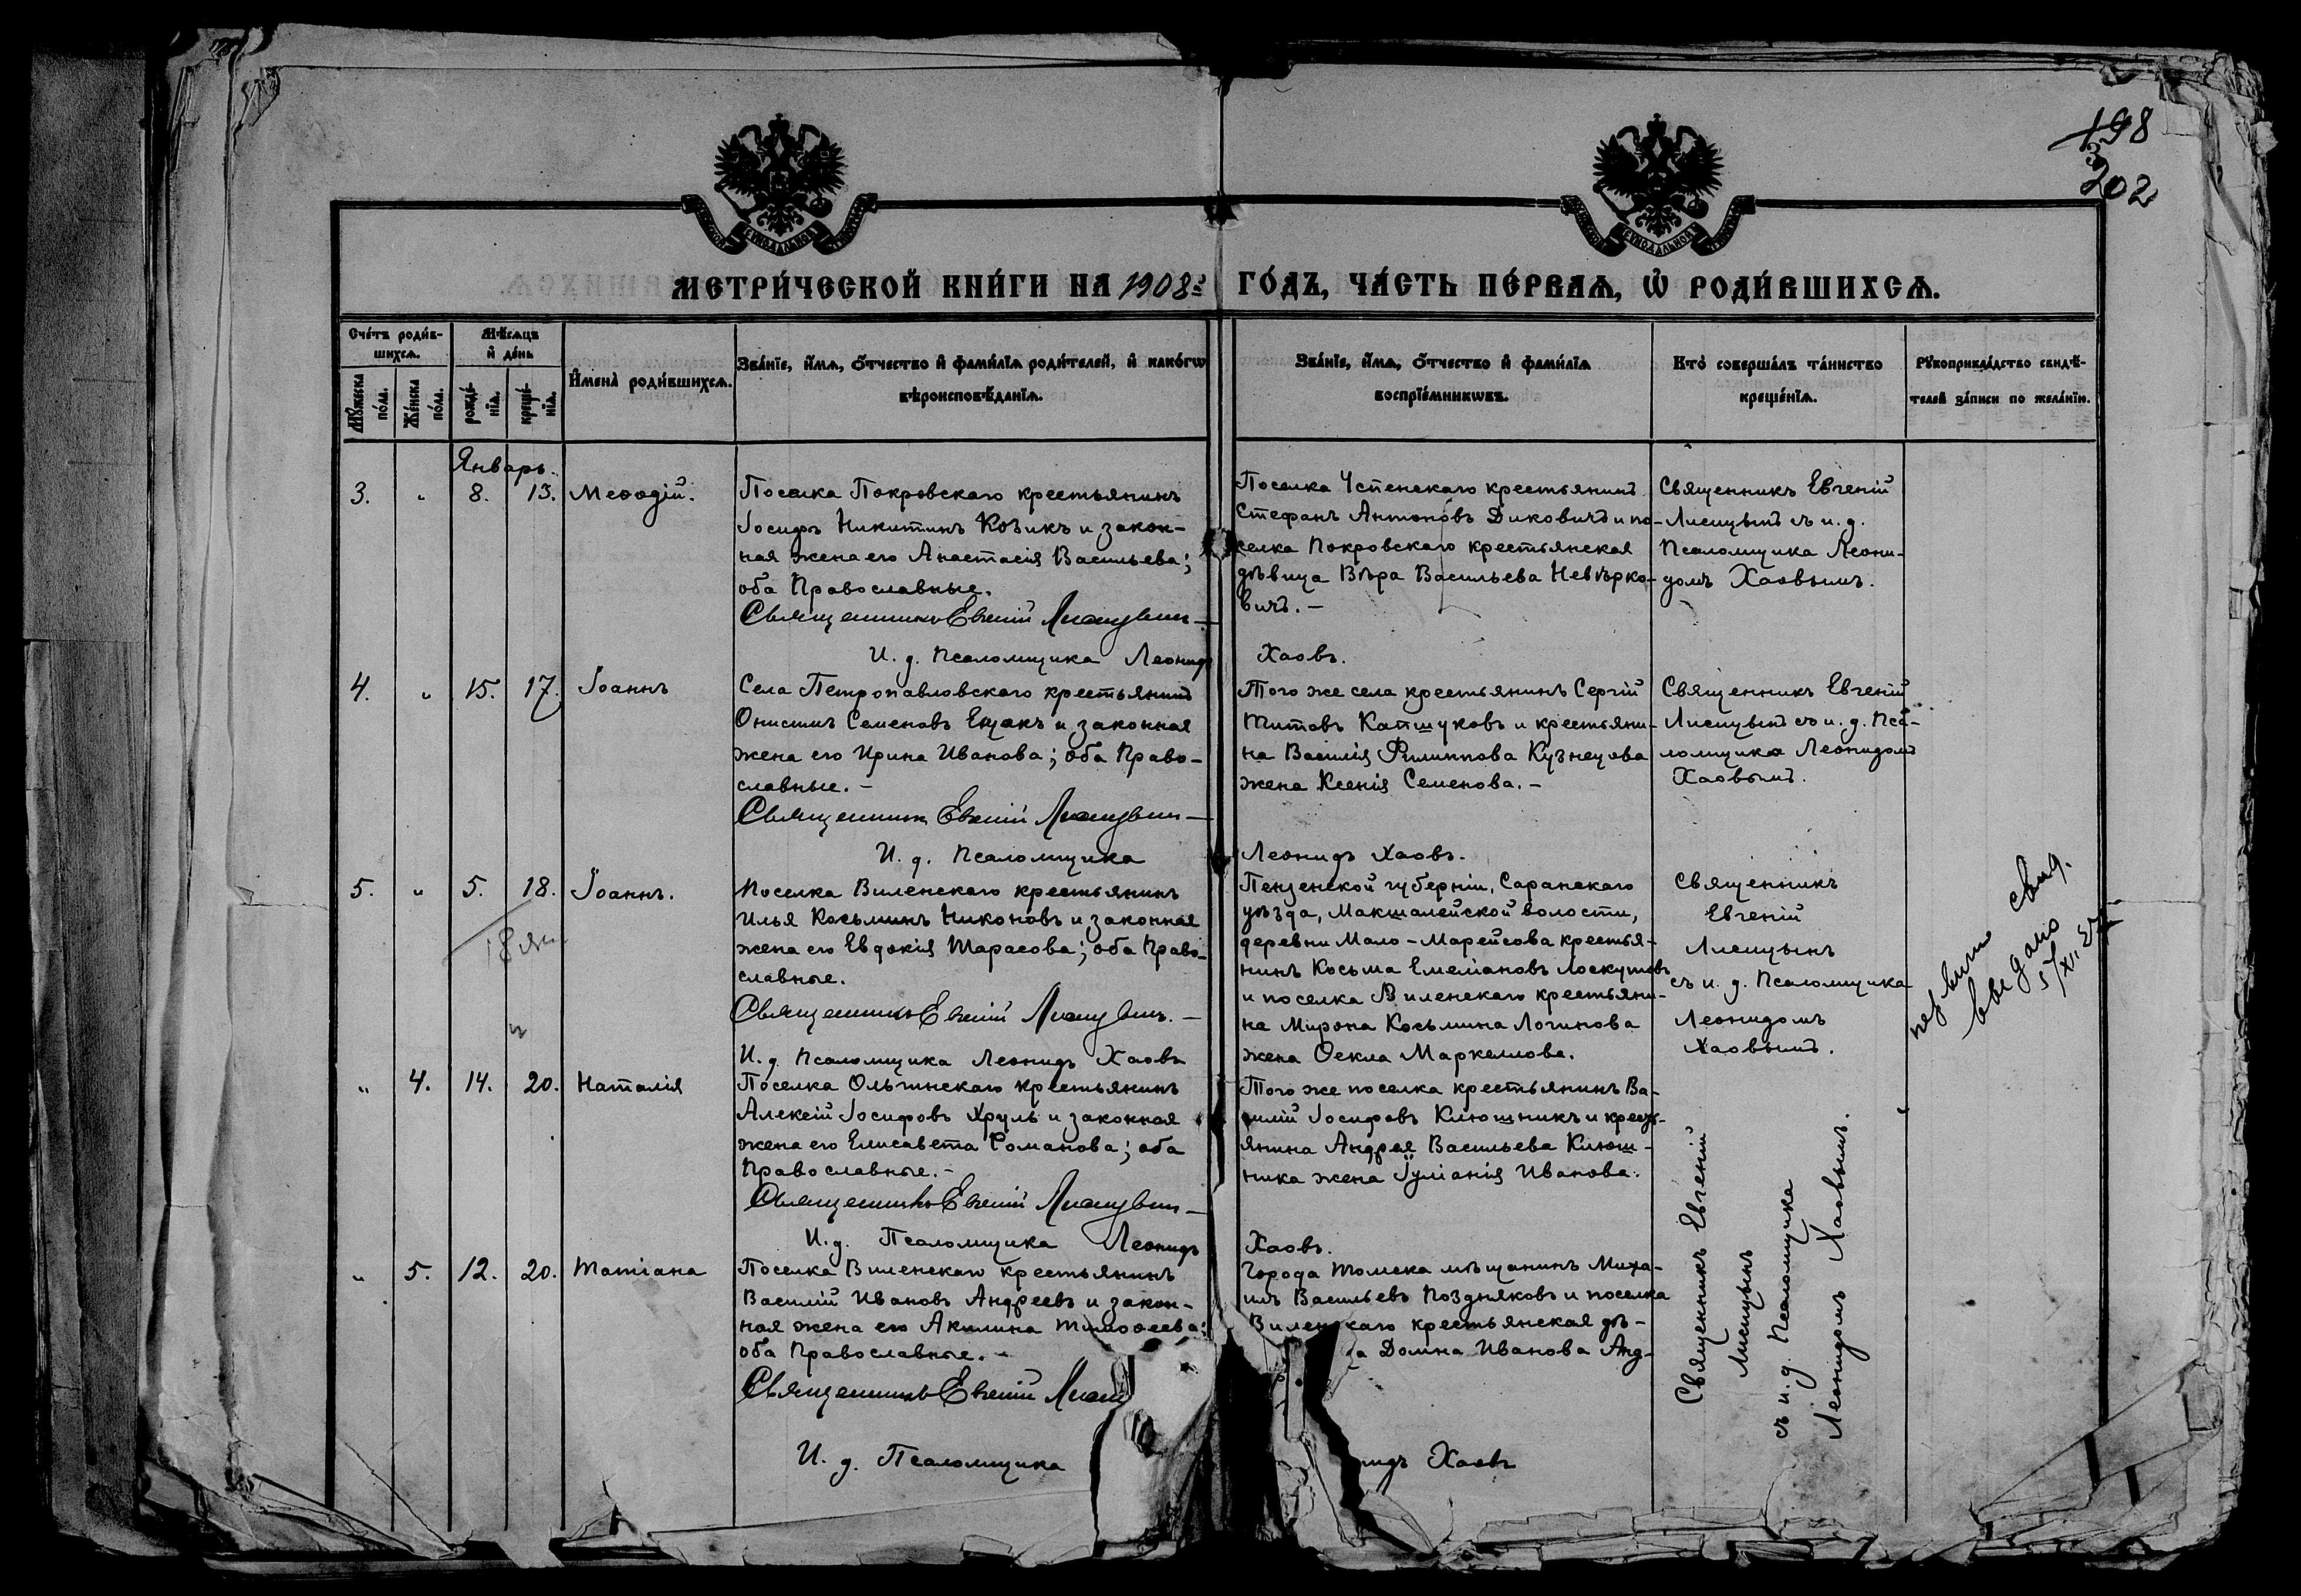 198
302
МЕТРИ́ЧЕСКОЙ КНИ́ГИ НА 1908й ГО́ДЪ, ЧА́СТЬ ПЕ́РВАѦ, Ѡ҆ РОДИ́ВШИХСѦ.
Сче́тъ роди́в-
шихсѧ.
Мꙋ́жеска по́ла.
Же́нска по́ла.
Мѣ́сѧцъ
и҆ де́нь
рожде́-
нїѧ.
креще́-
нїѧ.
И҆мена̀ роди́вшихсѧ.
Зва́нїе, и҆́мѧ, ѻ҆́тчество и҆ фами́лїѧ роди́телей, и҆ како́гѡ
вѣроисповѣ́данїѧ.
Зва́нїе, и҆́мѧ, ѻ҆́тчество и҆ фами́лїѧ
воспрїе́мникѡвъ.
Кто̀ соверша́лъ та́инство
креще́нїѧ.
Рꙋкоприкла́дство свидѣ́-
телей за́писи по жела́нїю.
Январь.
3. " 8. 13. Меѳодій.
Поселка Покровскаго крестьянинъ
Іосифъ Никитинъ Козикъ и закон-
ная жена его Анастасія Васильева;
оба Православные.
Священникъ Евгеній Лисицынъ
И. д. Псаломщика Леонидъ Хаовъ.
Поселка Успенскаго крестьянинъ
Стефанъ Антоновъ Диковичъ и по-
селка Покровскаго крестьянская
дѣвица Вѣра Васильева Невѣрко-
вичъ. –
Священникъ Евгеній
Лисицынъ съ и. д.
Псаломщика Леони-
домъ Хаовымъ.
4. " 15. 17. Іоаннъ
Села Петропавловскаго крестьянинъ
Онисимъ Семеновъ Ещакъ и законная
жена его Ирина Иванова; оба Право-
славные. –
Священникъ Евгеній Лисицынъ
И. д. Псаломщика Леонидъ Хаовъ.
Того же села крестьянинъ Сергій
Титовъ Капшуковъ и крестьяни-
на Василія Филиппова Кузнецова
жена Ксенія Семенова. –
Священникъ Евгеній
Лисицынъ съ и. д. Пса-
ломщика Леонидомъ
Хаовымъ.
5. " 5. 18. Іоаннъ.
18 ян
Поселка Виленскаго крестьянинъ
Илья Косьминъ Никоновъ и законная
жена его Евдокія Тарасова; оба Право-
славные.
Священникъ Евгеній Лисицынъ. –
И. д. Псаломщика Леонидъ Хаовъ
Пензенской губерніи, Саранскаго
уѣзда, Макшалейской волости,
деревни Мало-Марейсова крестья-
нинъ Косьма Емеліановъ Лоскутовъ
и поселка Виленскаго крестьяни-
на Мирона Косьмина Логинова
жена Ѳекла Маркеллова.
Священникъ
Евгеній
Лисицынъ
съ и. д. Псаломщика
Леонидомъ
Хаовымъ.
свид.
выдано
" 4. 14. 20. Наталія
Поселка Ольгинскаго крестьянинъ
Алексій Іосифовъ Хруль и законная
жена его Елисавета Романова; оба
Православные. –
Священникъ Евгеній Лисицынъ
И. д. Псаломщика Леонидъ Хаовъ.
Того же поселка крестьянинъ Ва-
силій Іосифовъ Клюшникъ и кресть-
янина Андрея Васильева Клюш-
ника жена Іуліанія Иванова.
Священникъ Евгеній
Лисицынъ
съ и. д. Псаломщика
Леонидомъ Хаовымъ.
" 5. 12. 20. Татіана
Поселка Виленскаго крестьянинъ
Василій Ивановъ Андреевъ и закон-
ная жена его Акилина Тимоѳеева;
оба Православные. –
Священникъ Евгеній Лиси
И. д. Псаломщика
нидъ Хаовъ
Города Томска мѣщанинъ Миха-
илъ Васильевъ Поздняковъ и поселка
Виленскаго крестьянская дѣ-
ца Домна Иванова Анд-